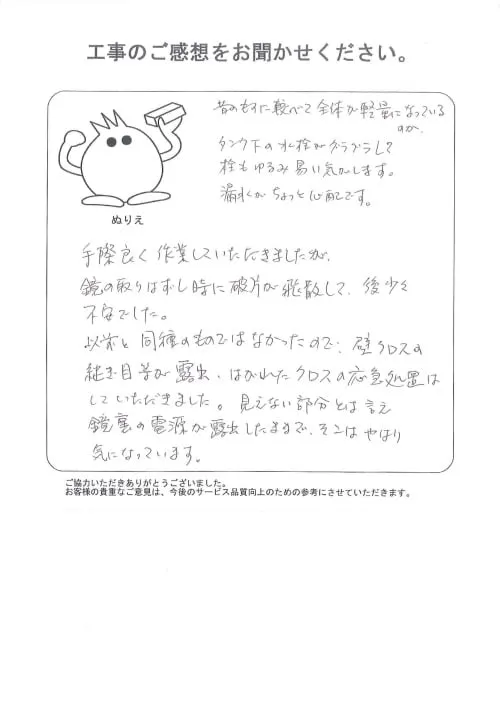 工事のご感想をお聞かせください。
昔のものに較べて全体が軽量になっている
のか、
タンク下の水栓がグラグラして
栓もゆるみ易い気がします。
漏水がちょっと心配です。
ぬりえ
手際良く作業していただきましたが、
鏡の取りはずし時に破片が飛散して、後少々
不安でした。
以前と同種のものではなかったので、壁クロスの
継ぎ目等が露出、はがれたクロスの応急処置は
していただきました。見えない部分とは言え
鏡裏の電源が露出したままで、そこはやはり
気になっています。
ご協力いただきありがとうございました。
お客様の貴重なご意見は、今後のサービス品質向上のための参考にさせていただきます。